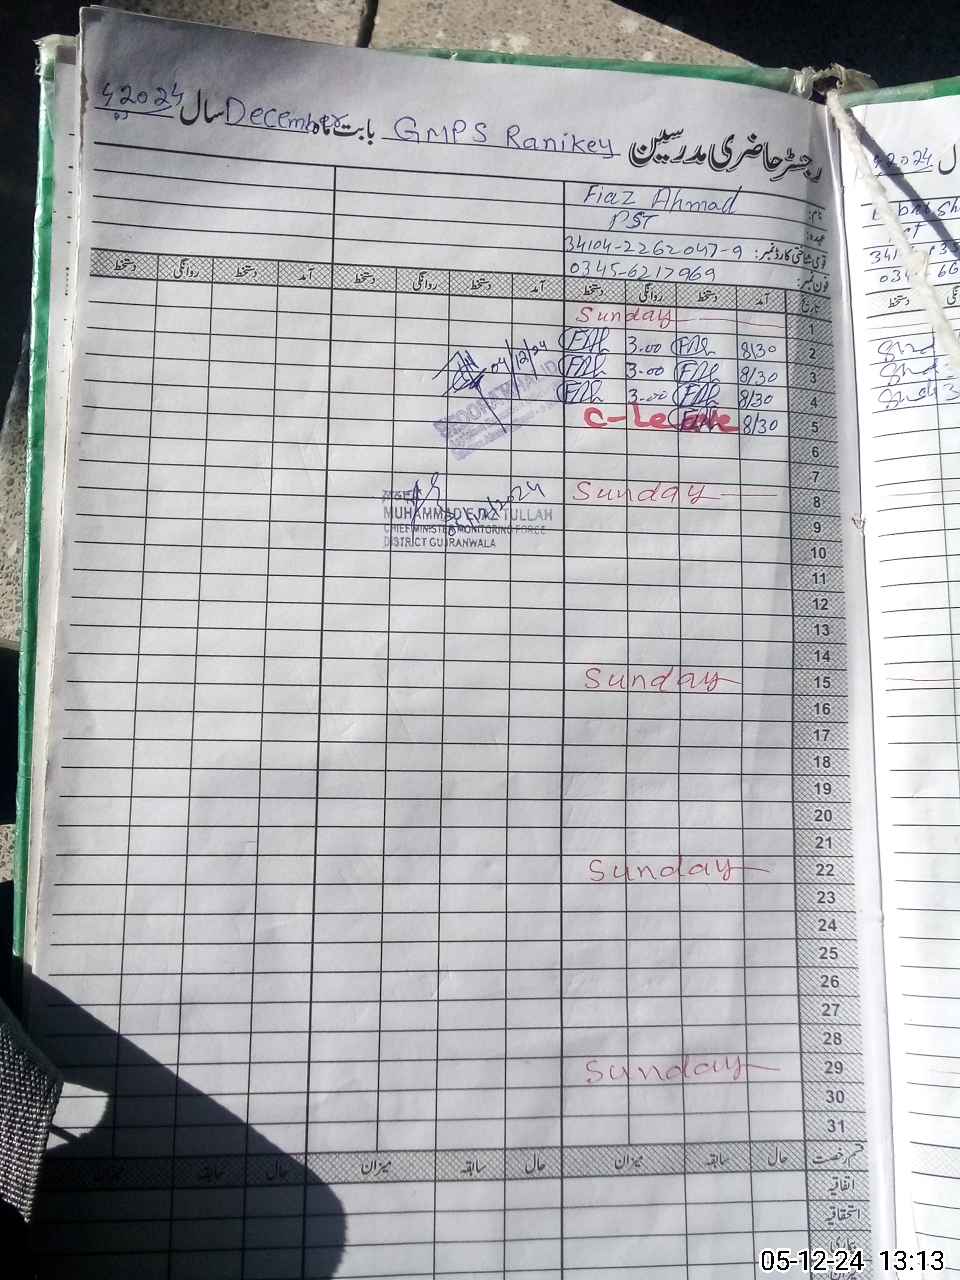 رجسٹر حاضری مدرسین GMPS Ranikey بابت ماہ December سال 2024ء
نام: Fiaz Ahmad
عہدہ: PST
قومی شناختی کارڈ نمبر: 34104-2262047-9
فون نمبر: 0345-6217969
تاریخ آمد دستخط روانگی دستخط آمد دستخط روانگی دستخط آمد دستخط روانگی دستخط
1 Sunday
2 8/30 3.00
3 8/30 3.00
4 8/30 3.00
04/12/24
5 8/30 C-Leave
6
7
8 Sunday
MUHAMMAD TULLAH
CHIEF MINISTER MONITORING FORCE
DISTRICT GUJRANWALA
9
10
11
12
13
14
15 Sunday
16
17
18
19
20
21
22 Sunday
23
24
25
26
27
28
29 Sunday
30
31
قسم رخصت حال سابقہ میزان حال سابقہ میزان حال سابقہ میزان
اتفاقیہ
استحقاقیہ
بیماری
میزان
سال 2024ء
دستخط
05-12-24 13:13